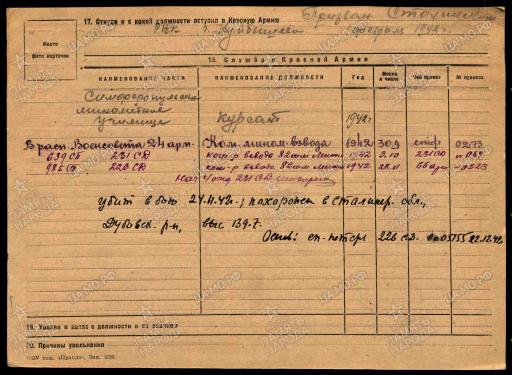 17. Откуда и с какой должности вступил в Красную Армию Призван Сталинским
РВК г. Куйбышева февраль 1942 г.
Место
фото карточки
18. Служба в Красной Армии
НАИМЕНОВАНИЕ ЧАСТИ НАИМЕНОВАНИЕ ДОЛЖНОСТИ Год Месяц и число Чей приказ № приказа
Симферопольское
минометное
училище курсант 1942 г
В расп. Военсовета 24 арм. Ком. мином. взвода 1942 30.9 0273
639 СП 231 СД ком-р взвода 82 мм 1942 3.10 231 СД
985 СП 226 СД ком-р взвода 82 мм 1942
Нач 4 отд 231 СД
убит в бою 24.11.42 г.; похоронен в Сталингр. обл.,
Дубовск. р-н, выс 139.7.
Основ: сп. потерь 226 с.д. вх 05155 02.12.42
19. Уволен в запас с должности и со званием
20. Причины увольнения
ПАМЯТЬ НАРОДА
ЦАМО.РФ